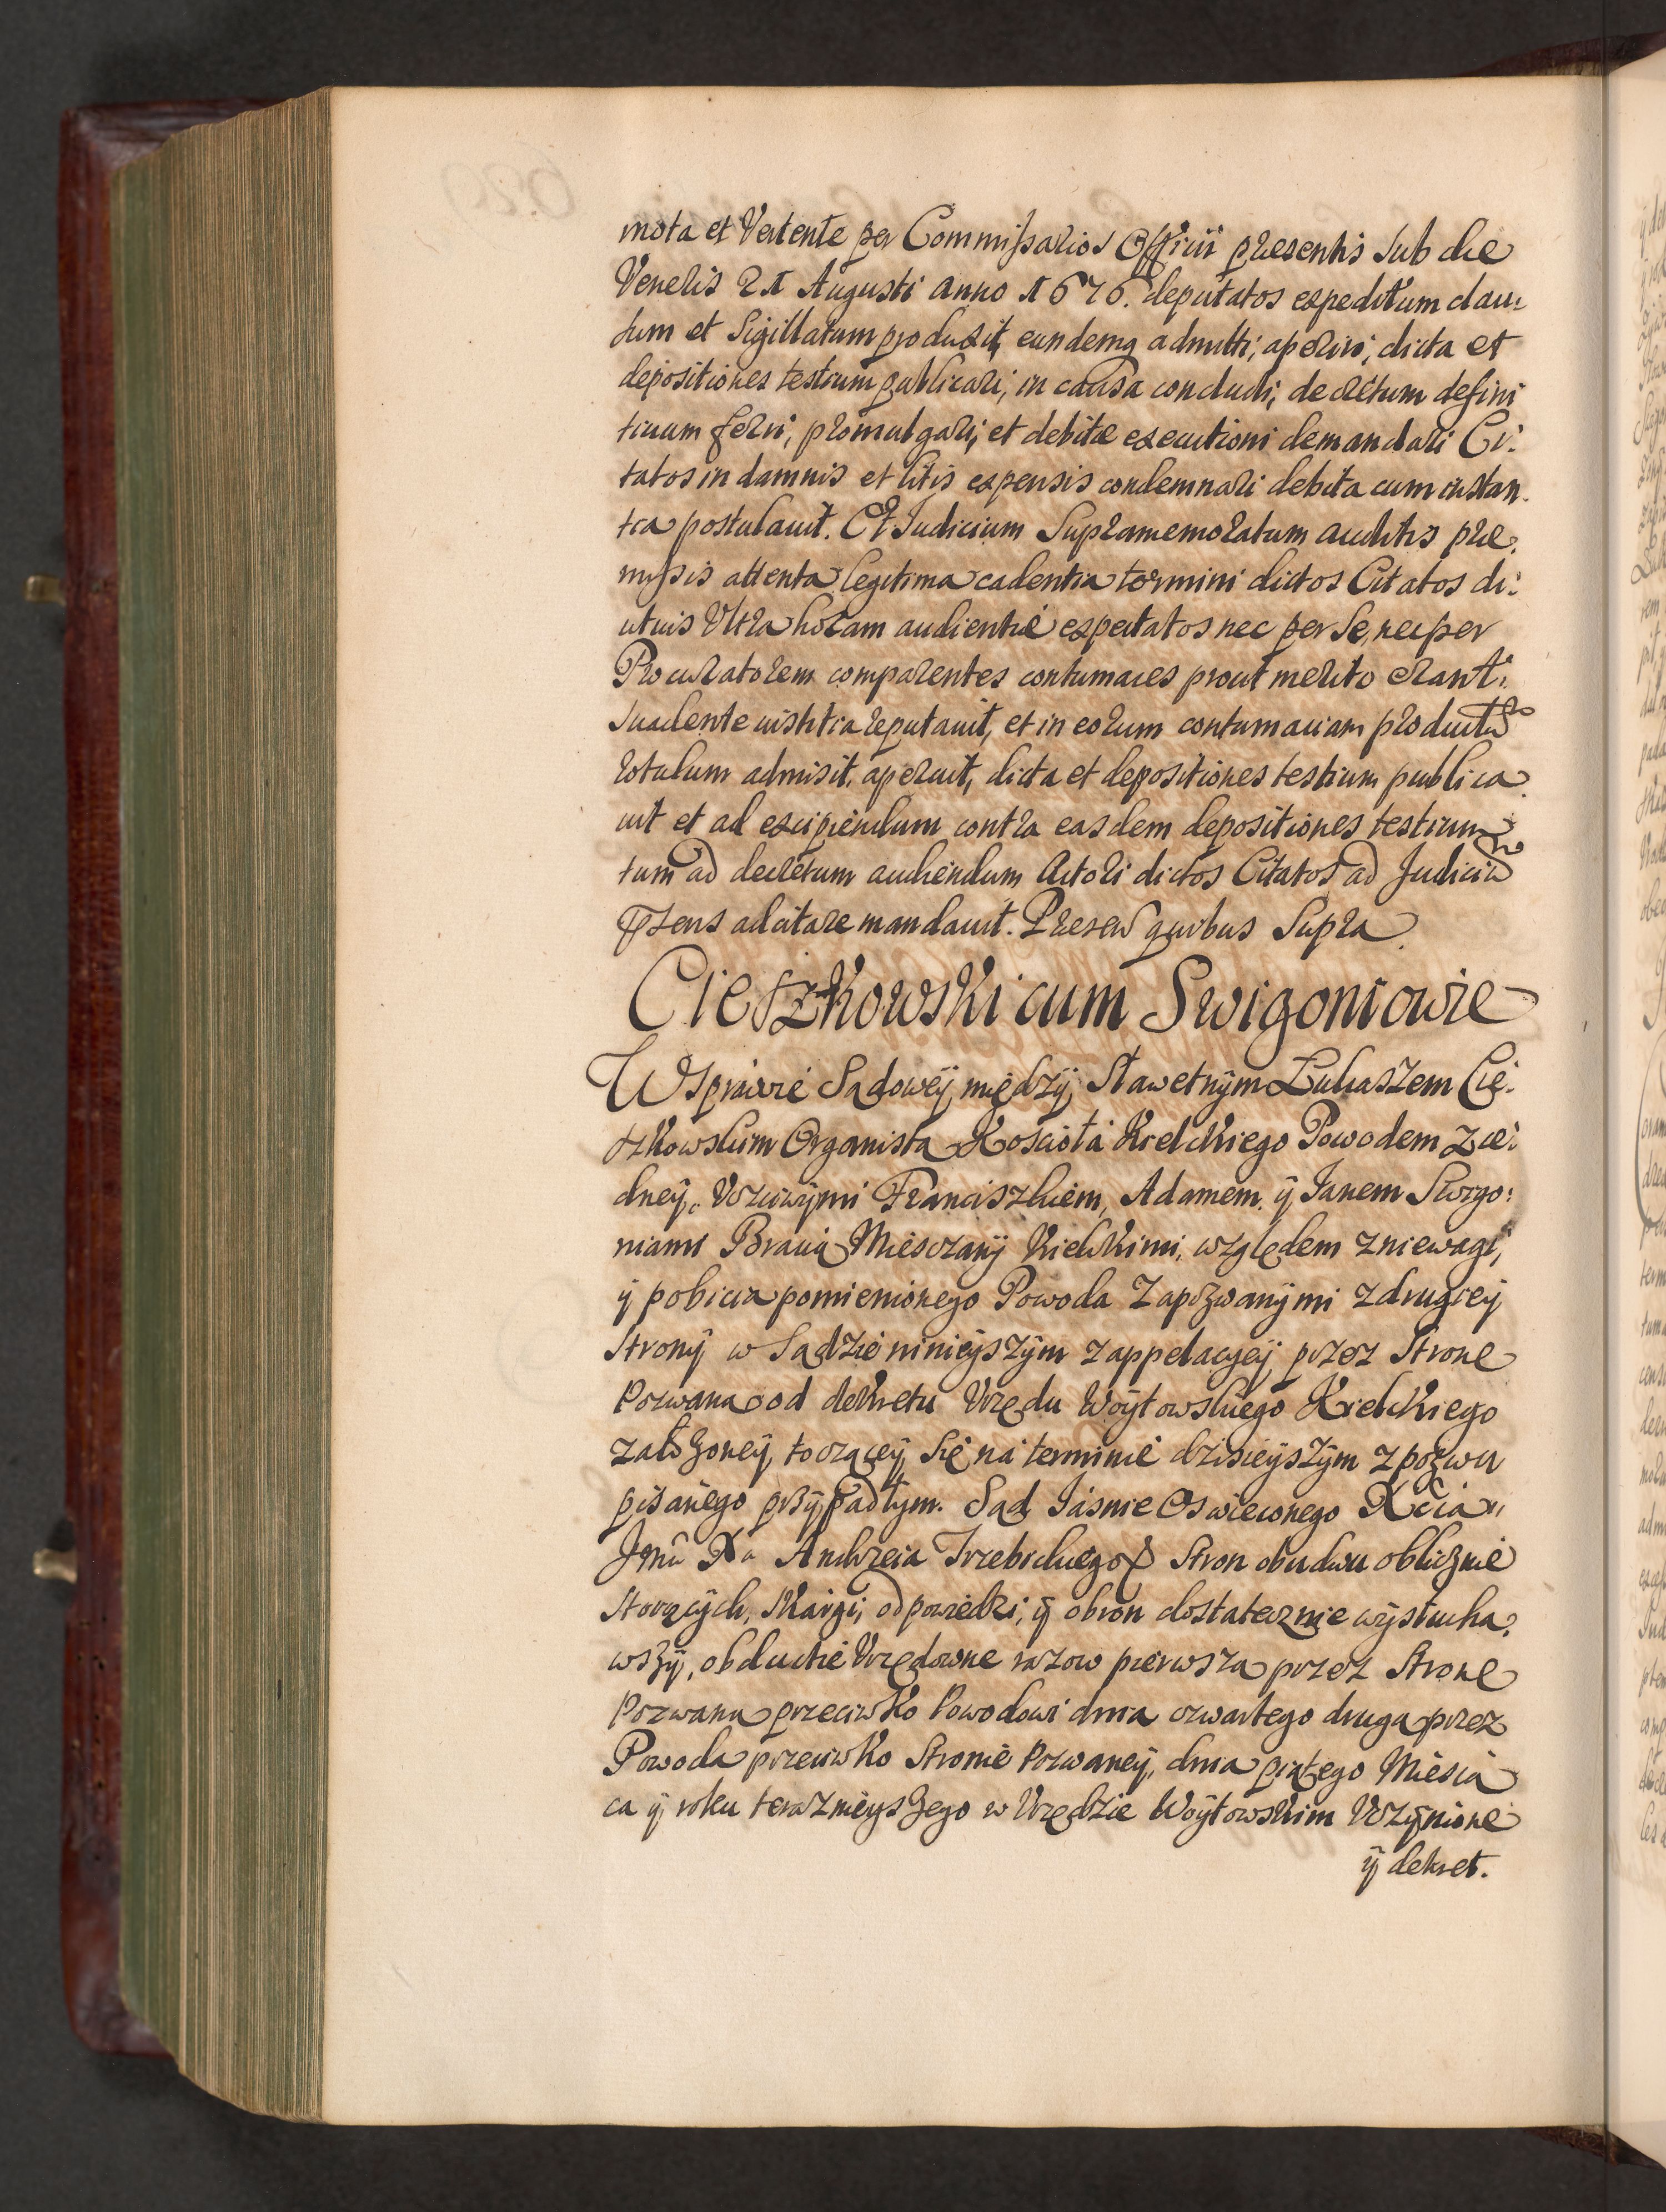 mota et Vertente per Commissarios Officii presentis sub die
Veneris 21 Augusti anno 1676. deputatos expeditum clau:
sum et Sigillatum produxit, eundemq admitti, aperiri, dicta et
depositiones testium publicari, in causa concludi, decretum defini
tiuum ferri, promulgari, et debitæ executioni demandari Ci:
tatos in damnis et litis expensis condemnari debita cum instan:
tia postulauit. Et Iudicium Supramemoratum auditis præ:
missis attenta legitima cadentia termini dictos Citatos di:
utius Vltra horam audientiæ expectatos nec per se, nec per
Procuratorem comparentes contumaces prout merito erant:
suadente iustitia reputauit, et in eorum contumaciam productū
rotulum admisit, aperuit, dicta et depositiones testium publica:
uit et ad excipiendum contra easdem depositiones testium
tum ad decretum audiendum Actori dictos Citatos ad Judiciū
pñens adcitare mandauit. Presen quibus Supra
Cieszkowski cum Swigoniowie
W sprawie Sądowey między Sławetnym Łukaszem Cie:
szkowskim Organistą Kościoła Kielckiego Powodem z ie:
dney, Vczciwymi Franciszkiem, Adamem, y Janem Swigo:
niami Bracią Miesczany Kielckimi, względem zniewagi,
y pobicia pomienionego Powoda Zapozwanymi z drugiey
Strony w Sądzie ninieyszym z appellacyey przez Stronę
Pozwaną od dekretu Vrzędu Woytowskiego Kielckiego
założoney, toczącey się na terminie dzisieyszym z pozwu
pisanego przypadłym. Sąd Jasnie Oswieconego Xcia
Jmci Xa Andrzeia Trzebickiego Stron obudwu oblicznie
Stoiących, Skargi, odpowiedzi, y obron dostatecznie wysłucha:
wszy, obdukcie Vrzędowne razow pierwszą przez Stronę
Pozwaną przeciwko Powodowi dnia czwartego drugą przez
Powoda przeciwko Stronie Pozwaney, dnia piątego Miesią
ca y roku teraznieyszego w Vrzędzie Woytowskim Vczynione
y dekret.